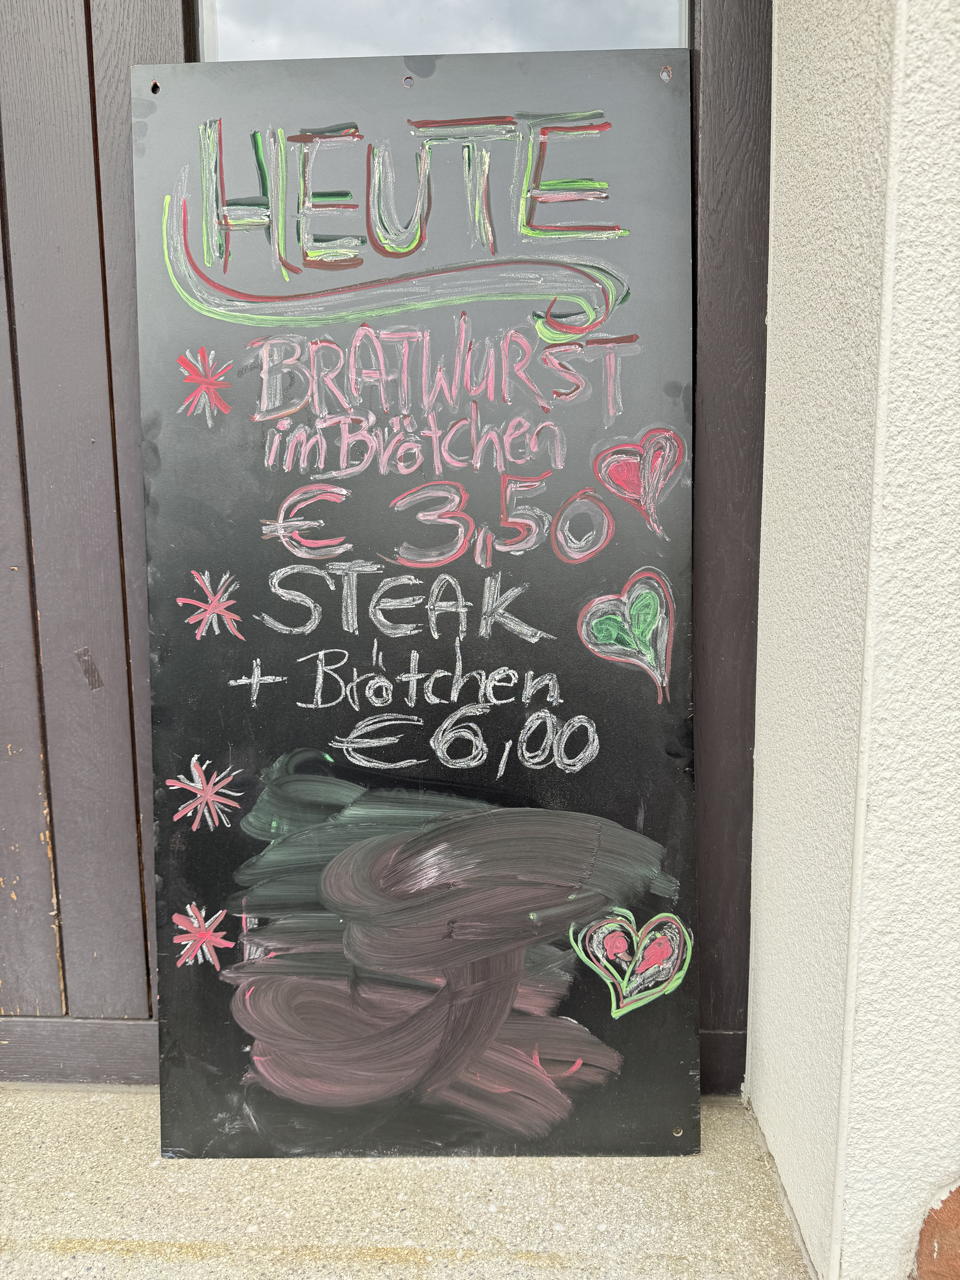 HEUTE
BRATWURST
im Brötchen
€ 3,50
STEAK
+ Brötchen
€ 6,00